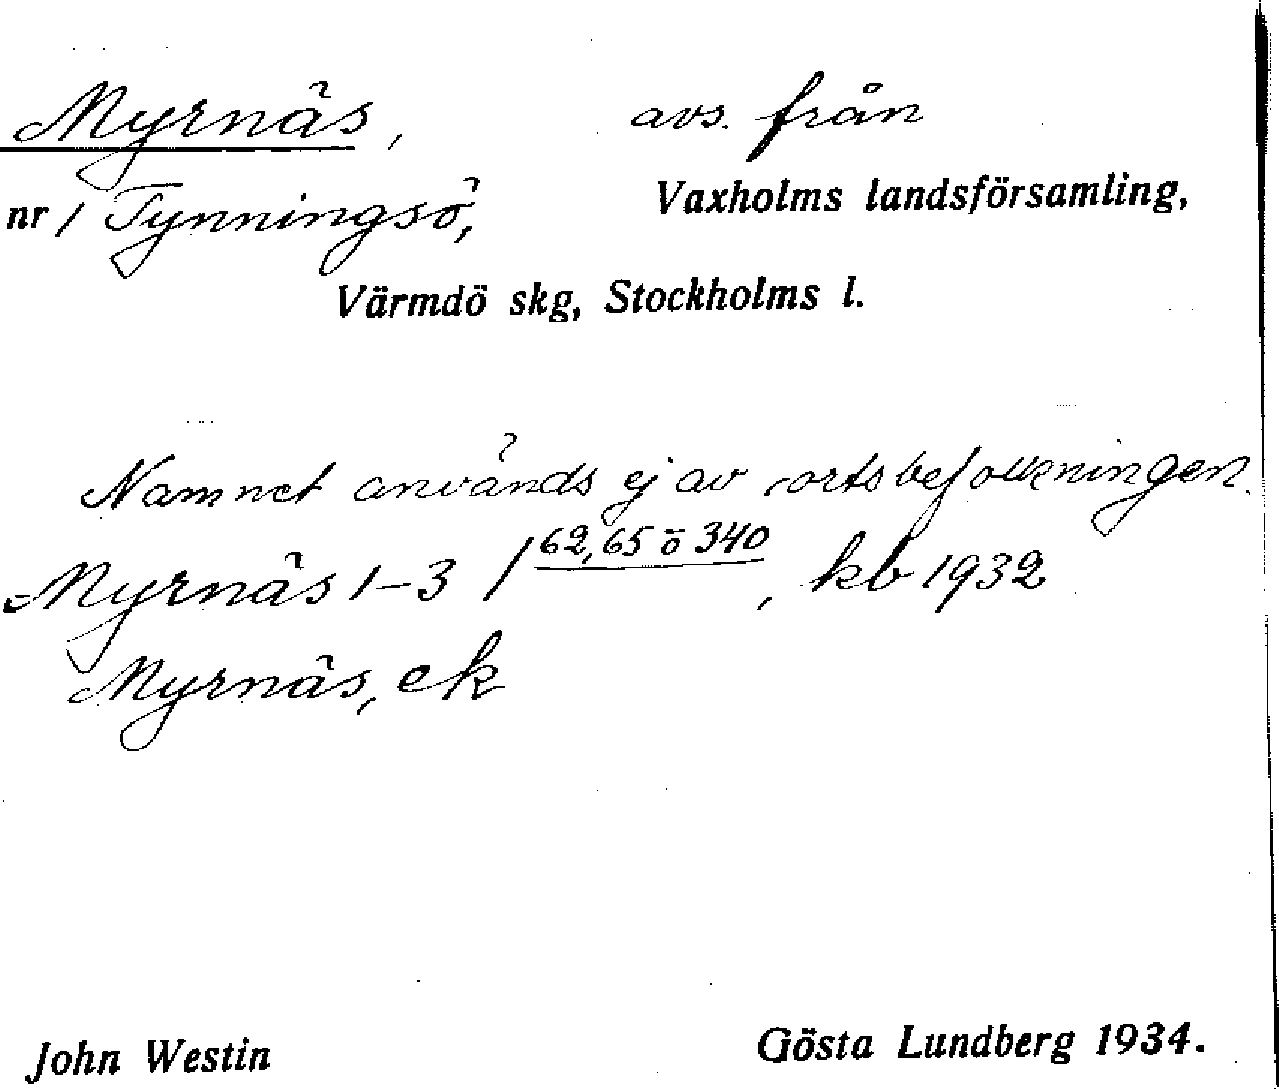 Myrnäs, avs. från
nr 1 Tynningsö, Vaxholms landsförsamling,
Värmdö skg, Stockholms l.
Namnet används ej av ortsbefolkningen.
Myrnäs 1-3 / 62,65 ö 340, kb 1932
Myrnäs, ek
John Westin Gösta Lundberg 1934.